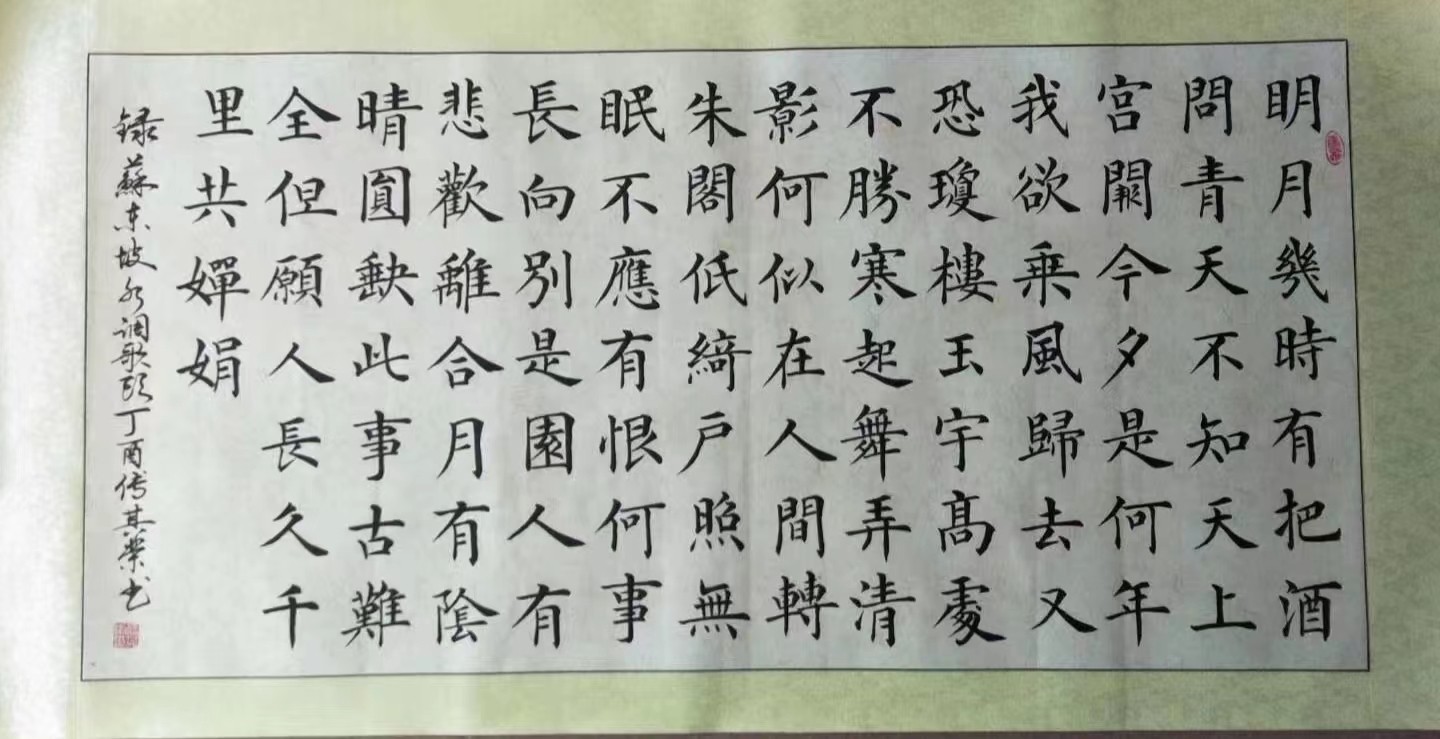 明月幾時有把酒
問青天不知天上
宫闕今夕是何年
我欲乗風歸去又
恐瓊樓玉宇髙處
不勝寒起舞弄清
影何似在人間轉
朱閣低綺户照無
眠不應有恨何事
長向别是園人有
悲歡離合月有陰
晴圓缺此事古難
全但願人長久千
里共嬋娟
録蘇东坡水调歌头丁酉传其荣书